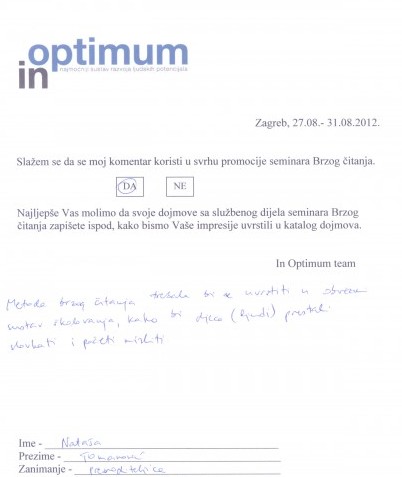 optimum
in
najmoćniji sustav razvoja ljudskih potencijala
Zagreb, 27.08.- 31.08.2012.
Slažem se da se moj komentar koristi u svrhu promocije seminara Brzog čitanja.
DA NE
Najljepše Vas molimo da svoje dojmove sa službenog dijela seminara Brzog
čitanja zapišete ispod, kako bismo Vaše impresije uvrstili u katalog dojmova.
In Optimum team
Metoda brzog čitanja trebala bi se uvrstiti u obvezan
sustav školovanja, kako bi djeca (ljudi) prestali
štrebati i početi misliti
Ime - Nataša
Prezime - Tomanović
Zanimanje - prevoditeljica